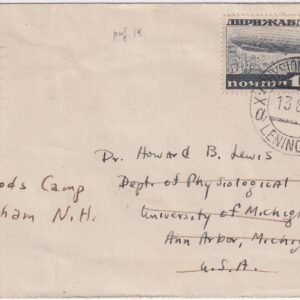 perf. 14
ДИРИЖАБЛ
ПОЧТА
13 8
LENING
Dr. Howard B. Lewis
Dept. of Physiological
University of Michig
Ann Arbor, Michig
U.S.A.
ods Camp
ham N.H.